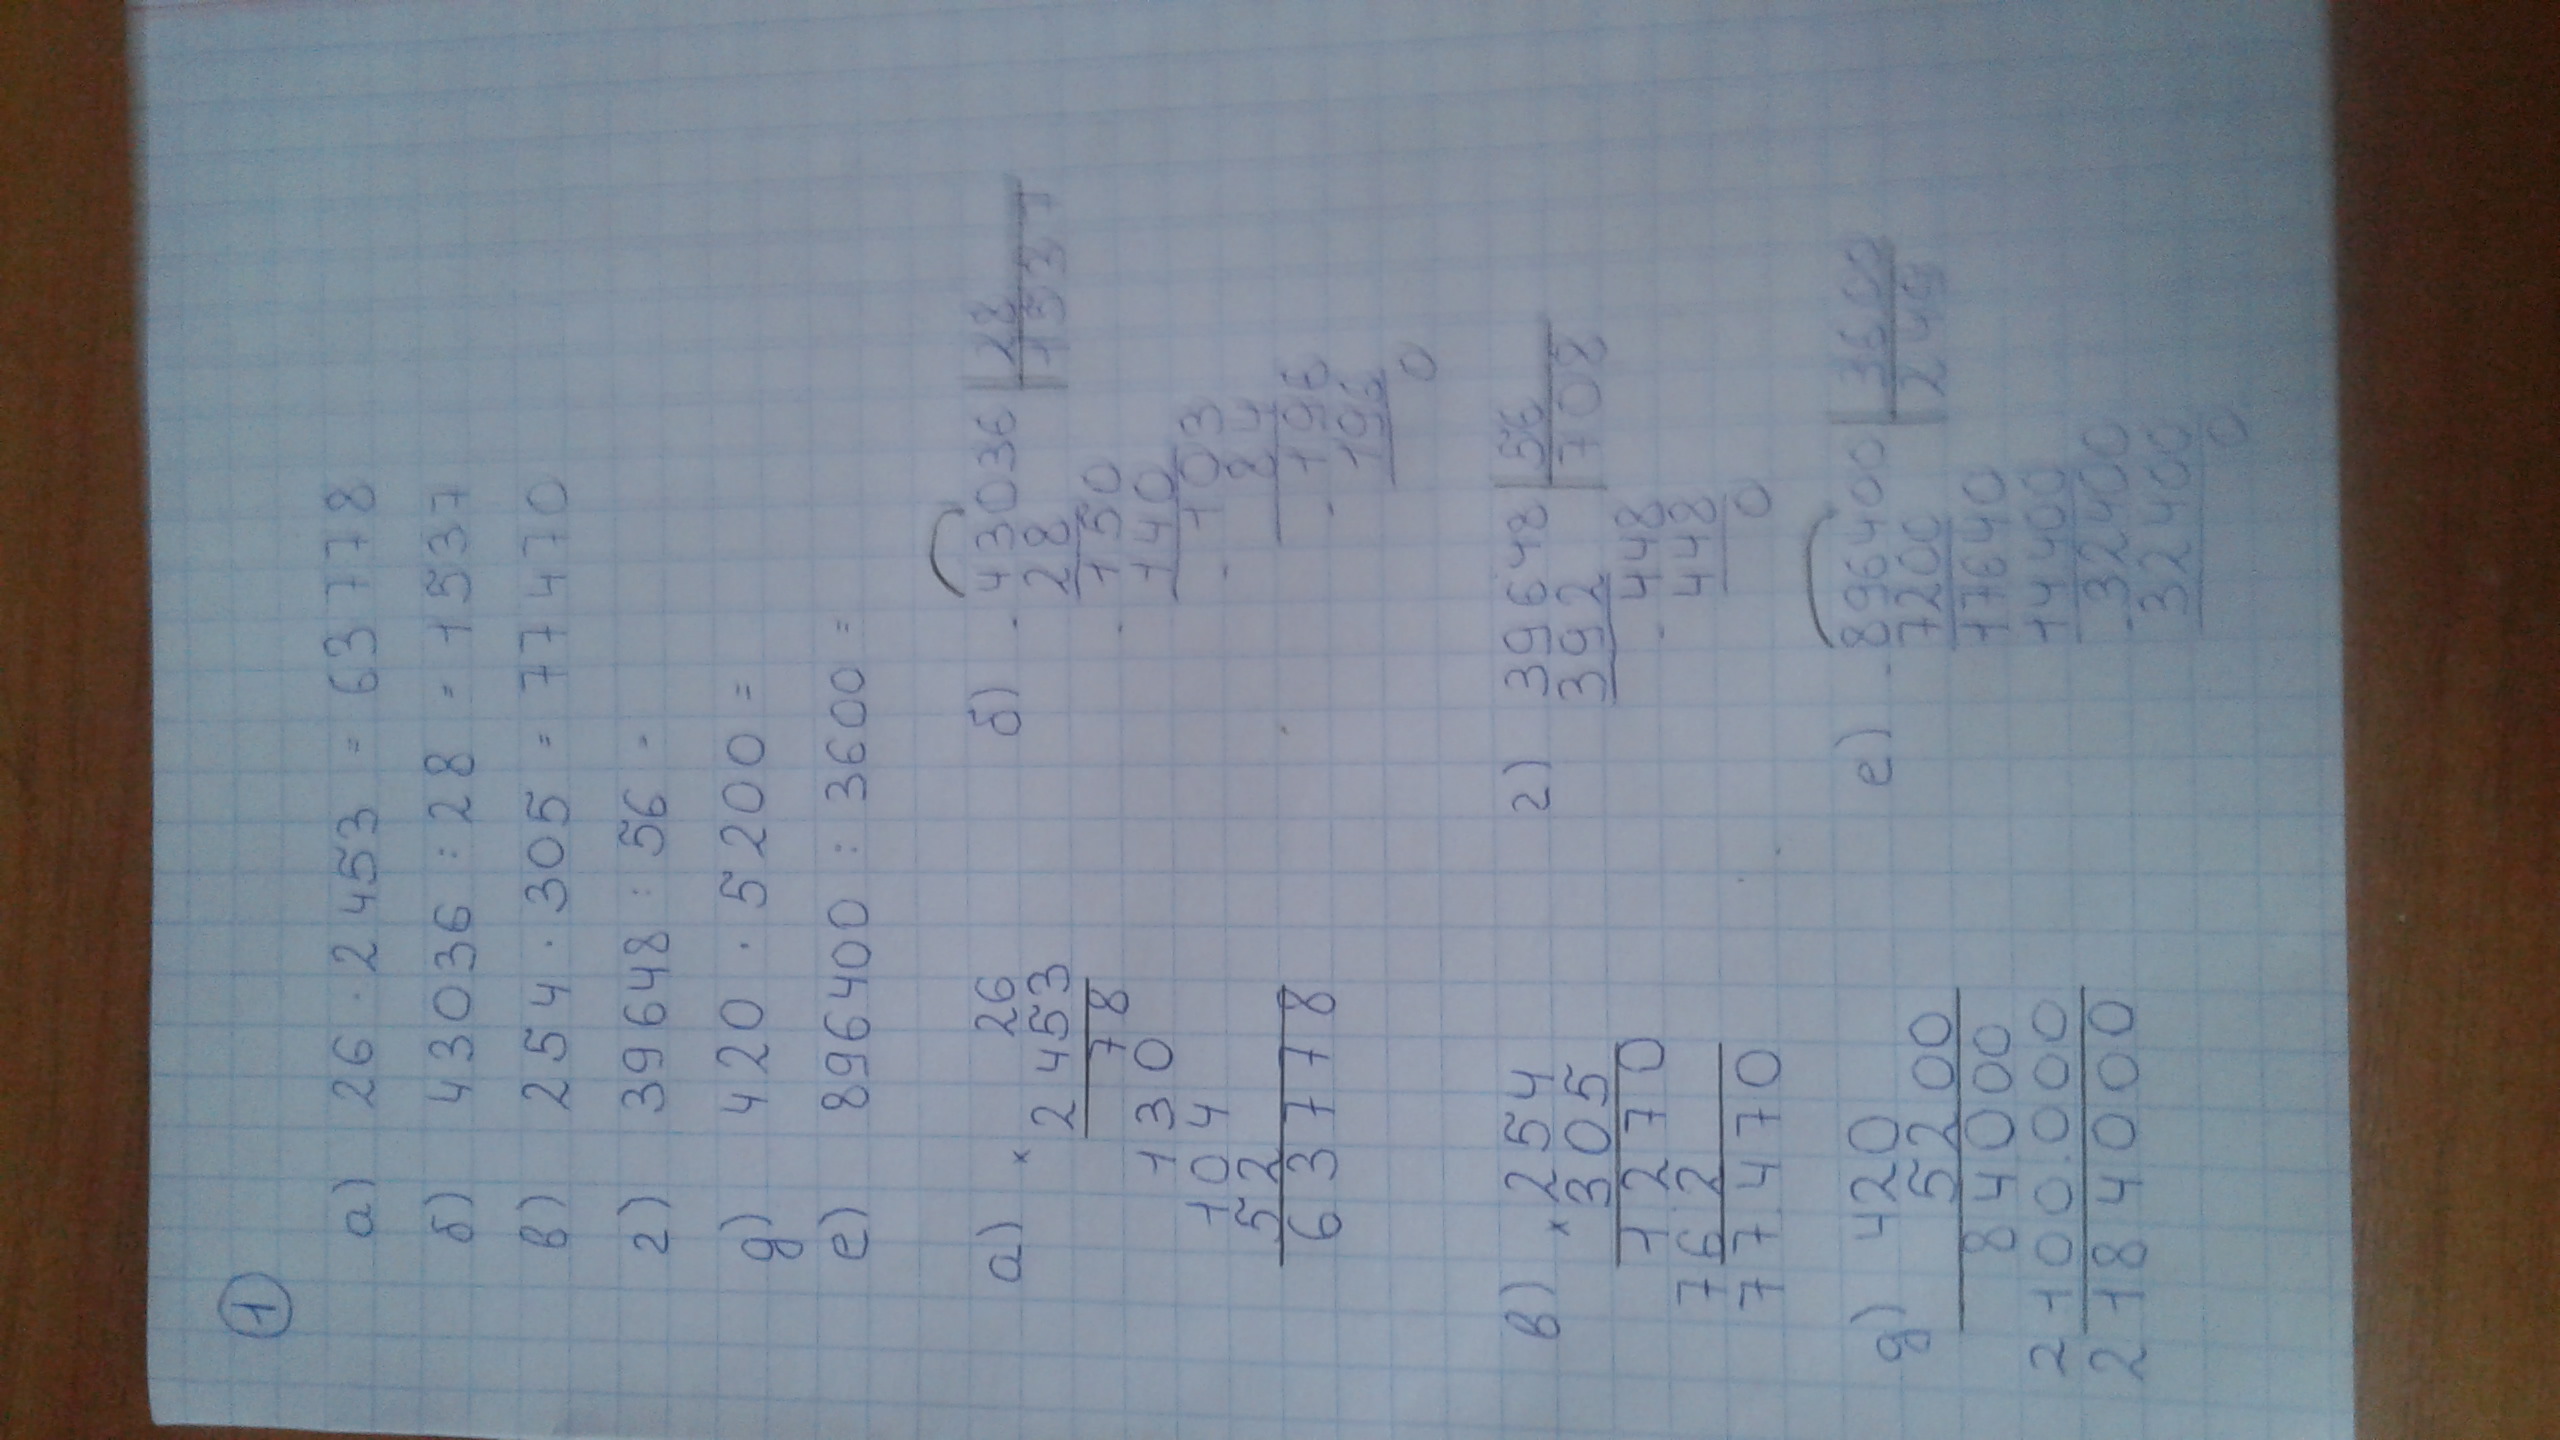 1
а) 26 · 2453 = 63778
б) 43036 : 28 = 1537
в) 254 · 305 = 77470
г) 39648 : 56 =
д) 420 · 5200 =
е) 896400 : 3600 =
а) × 26
2453
78
130
104
52
63778
б) 43036 | 28
28 | 1537
150
140
103
84
196
196
0
в) × 254
305
1270
762
77470
г) 39648 | 56
392 | 708
448
448
0
д) 420
5200
84000
2100.000
2184000
е) 896400 | 3600
7200 | 249
17640
14400
32400
32400
0